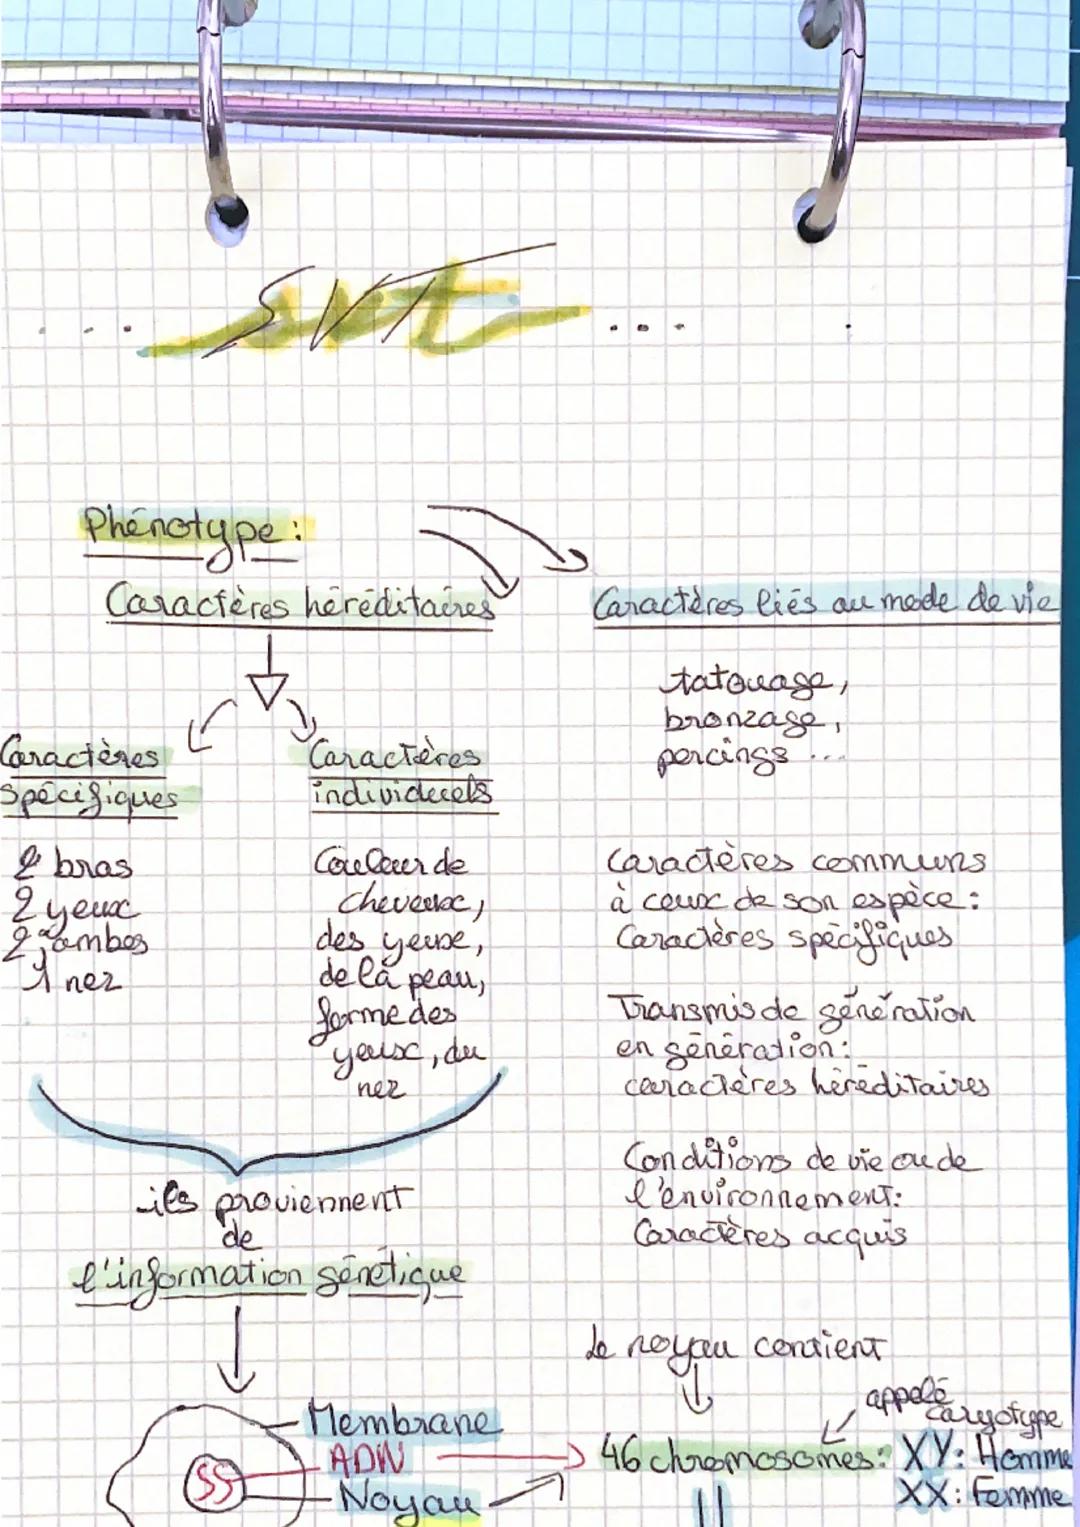 SVT
Phénotype :
Caractères héréditaires
Caractères liés au mode de vie
tatouage,
bronzage,
percings ...
Caractères
spécifiques
2 bras
2 yeux
2 jambes
1 nez
Caractères
individuels
Couleur de
cheveux,
des yeux,
de la peau,
forme des
yeux, du
nez
Caractères communs
à ceux de son espèce :
Caractères spécifiques
Transmis de génération
en génération :
caractères héréditaires
Conditions de vie ou de
l'environnement :
Caractères acquis
ils proviennent
de
l'information génétique
Membrane
ADN
Noyau
Le noyau contient
appelé
caryotype
46 chromosomes : XY : Homme
XX : Femme